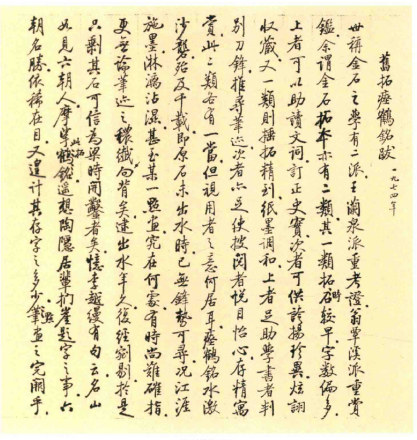 舊拓瘞鶴銘跋
一九七四年
世稱金石之學有二派王蘭泉派重考證翁覃溪派重賞
鑑余謂金石拓本亦有二類其一類拓石時較早字數偏多
上者可以助讀文詞訂正史實次者可供誇揚珍異炫詡
收藏又一類則搥拓精到紙墨調和上者足助學書者判
別刀鋒推尋筆迹次者亦足使披閱者悅目怡心存精寓
賞此二類各有一當但視用者之意何居耳瘞鶴銘水激
沙礱殆及千載即原石未出水時已無鋒勢可尋況江涯
施墨淋漓沾濕甚至某一點畫究在何處有時尚難確指
更無論筆迹之穠纖向背矣逮出水年久復經剜剔於是
只剩其石可信為梁時開鑿者矣憶李越縵有句云名山
如見六朝人摩挲此拓遥想陶隱居輩捫崖題字之事六
朝名勝依稀在目又遑計其存字之多少點畫之完闕乎